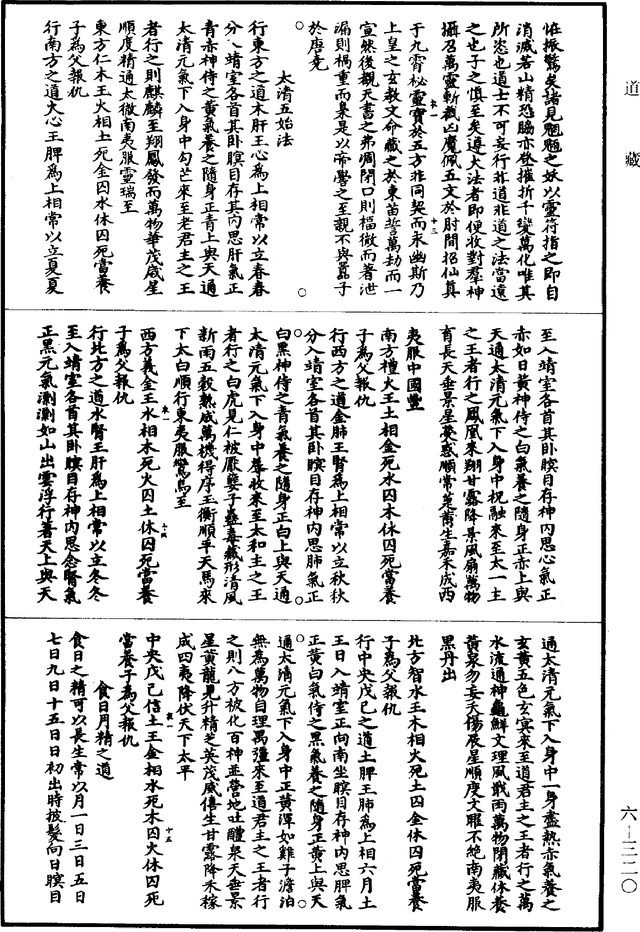 道藏
怪振驚矣諸見魍魎之妖以靈符指之即自
消滅若山精恐腦亦發摧折千變萬化唯其
所恣也道士不可妄行非道非道之法當遠
之也子之慎至矣遵大法者即便收對羣神
攝召萬靈斬截凶魔佩五文於肘間招仙真
于九霄秘靈寶於五方非同契而永幽斯乃
上皇之玄教文命藏之於東苗誓萬劫而一
宣然後觀天書之弗凋閉口則福微而著泄
漏則禍重而臬是以帝嚳之至覲不與囂子
於唐堯
太清五始法
行東方之道木肝王心為上相常以立春春
分入靖室各首其卧瞑目存其內思肝氣正
青赤神侍之黃氣養之隨身正青上與天通
太清元氣下入身中勾芒來至老君主之王
者行之則麒麟至翔鳳發而萬物華茂歲星
順度精通太微南夷服靈瑞至
東方仁木王火相土死金囚水休囚死當養
子為父報仇
行南方之道火心王脾為上相常以立夏夏
至入靖室各首其卧瞑目存神內思心氣正
赤如日黃神侍之白氣養之隨身正赤上與
天通太清元氣下入身中祝融來至太一主
之王者行之鳳凰來翔甘露降景風扇萬物
育長天垂景星熒惑順常蓂莆生嘉禾成西
夷服中國豐
南方禮火王土相金死水囚木休囚死當養
子為父報仇
行西方之道金肺王腎為上相常以立秋秋
分入靖室各首其卧瞑目存神內思肺氣正
白黑神侍之青氣養之隨身正白上與天通
太清元氣下入身中蓐收來至太和主之王
者行之白虎見仁被厭孽子蟲毒藏形清風
新雨五穀熟成萬機得序玉衡順平天馬來
下太白順行東夷服鸞鳥至
西方義金王水相木死火囚土休囚死當養
子為父報仇
行北方之道水腎王肝為上相常以立冬冬
至入靖室各首其卧瞑目存神內思念腎氣
正黑元氣洌洌如山出雲浮行著天上與天
通太清元氣下入身中一身盡熱赤氣養之
玄黃五色玄冥來至道君主之王者行之萬
水流通神龜鮮文理風戢雨萬物閉藏休養
黃泉勿妄夭傷辰星順度文耀不絶南夷服
黑丹出
北方智水王木相火死土囚金休囚死當養
子為父報仇
行中央戊己之道土脾王肺為上相六月土
王日入靖室正向南坐瞑目存神內思脾氣
正黃白氣侍之黑氣養之隨身正黃上與天
通太清元氣下入身中正黃渾如雞子澹泊
無為萬物自理禹彊來至道君主之王者行
之則八方被化百神並營地吐醴泉天垂景
星黃龍見升精芝英茂威僖生甘露降禾稼
成四夷降伏天下太平
中央戊己信土王金相水死木囚火休囚死
當養子為父報仇
食日月精之道
食日之精可以長生常以月一日三日五日
七日九日十五日日初出時披髮向日瞑目
六-三二〇